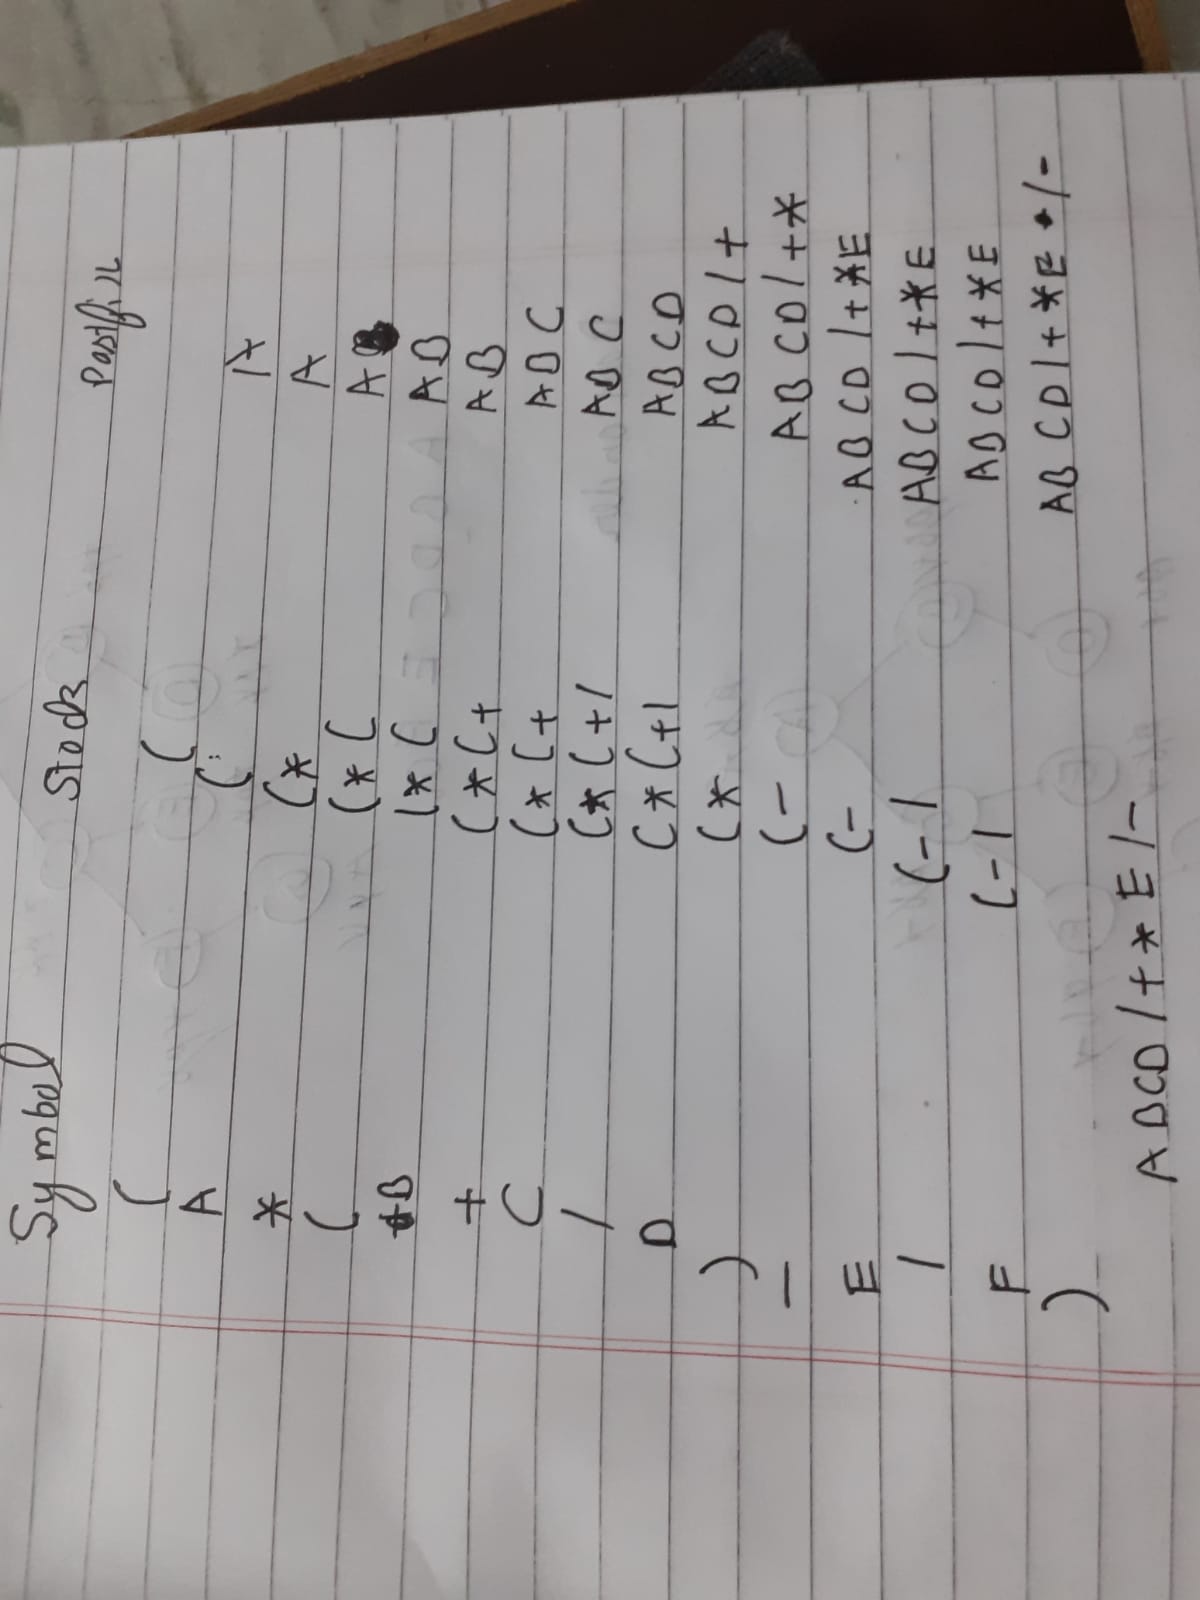 Symbol Stack Postfix
( (
A ( A
* (* A
( (*( A
B (*( AB
+ (*(+ AB
C (*(+ ABC
/ (*(+/ ABC
D (*(+/ ABCD
) (* ABCD/+
- (- ABCD/+*
E (- ABCD/+*E
/ (-/ ABCD/+*E
F (-/ ABCD/+*E
) ABCD/+*E/-
ABCD/+*E/-